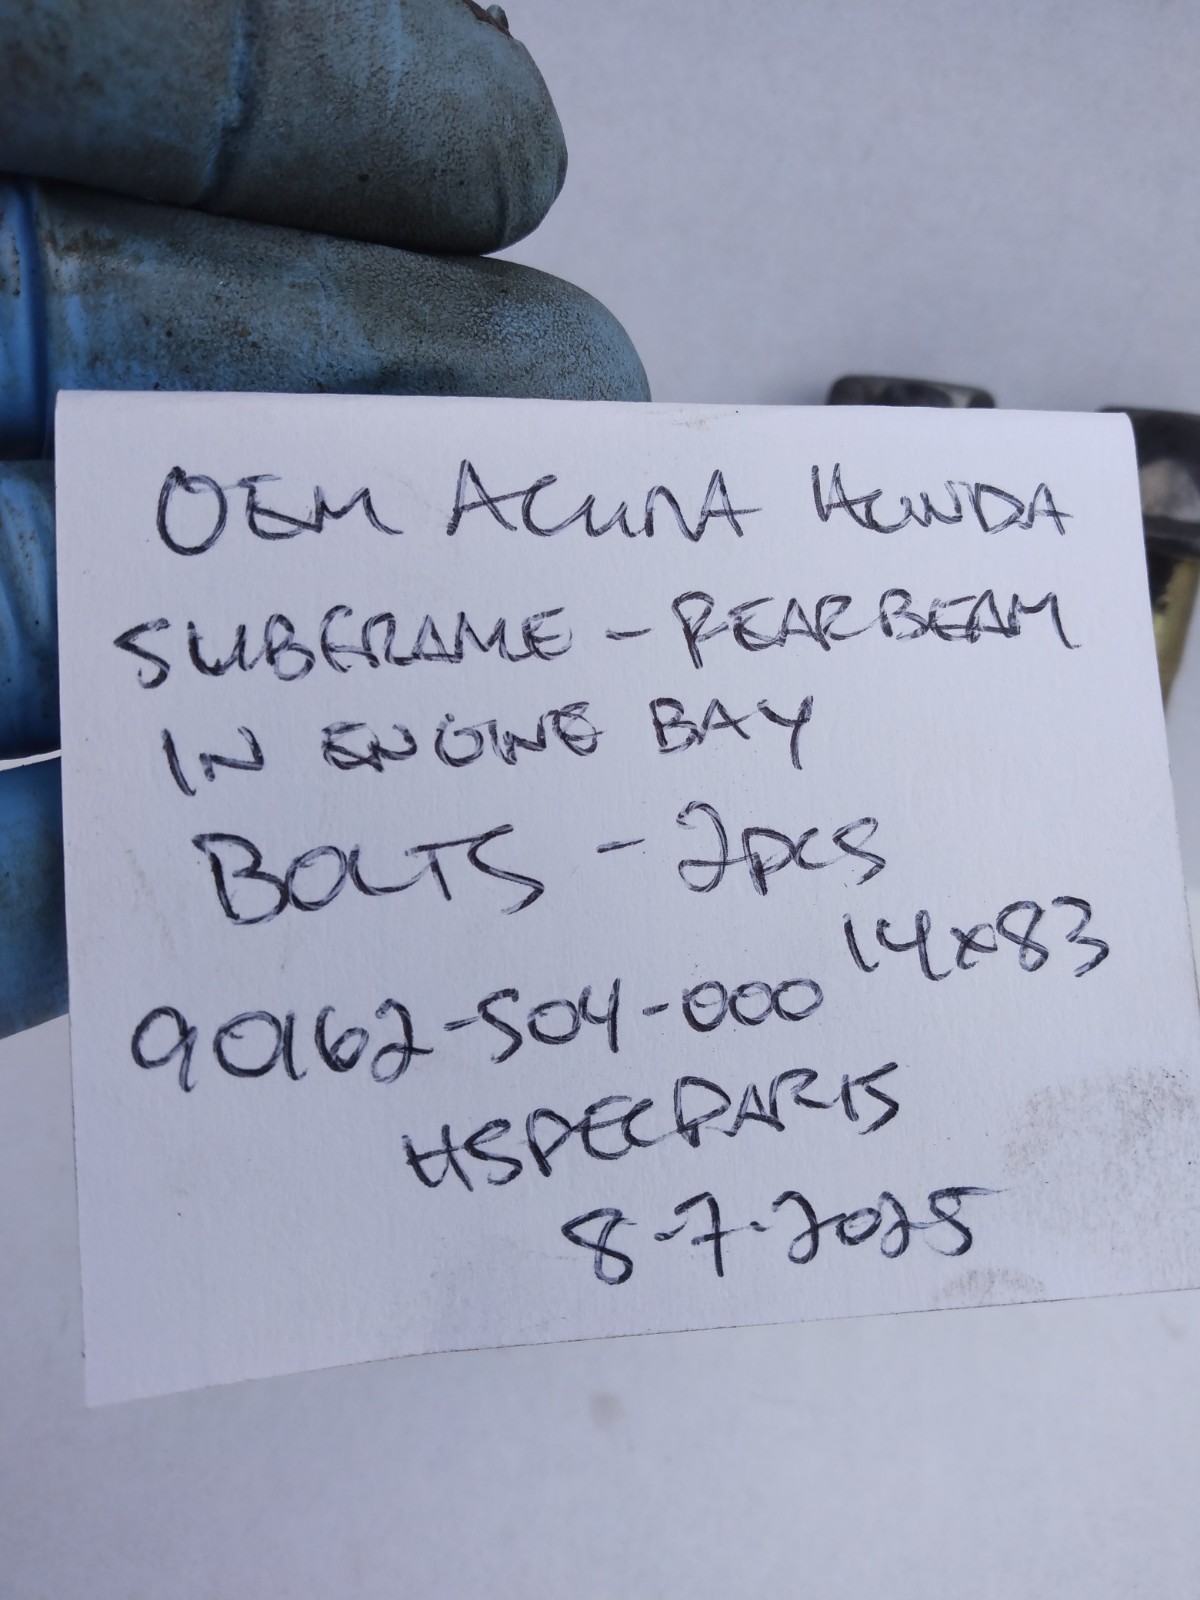 OEM ACURA HONDA
SUBFRAME - REAR BEAM
IN ENGINE BAY
BOLTS - 2PCS
14x83
90162-504-000
HSPECPARTS
8-7-2025